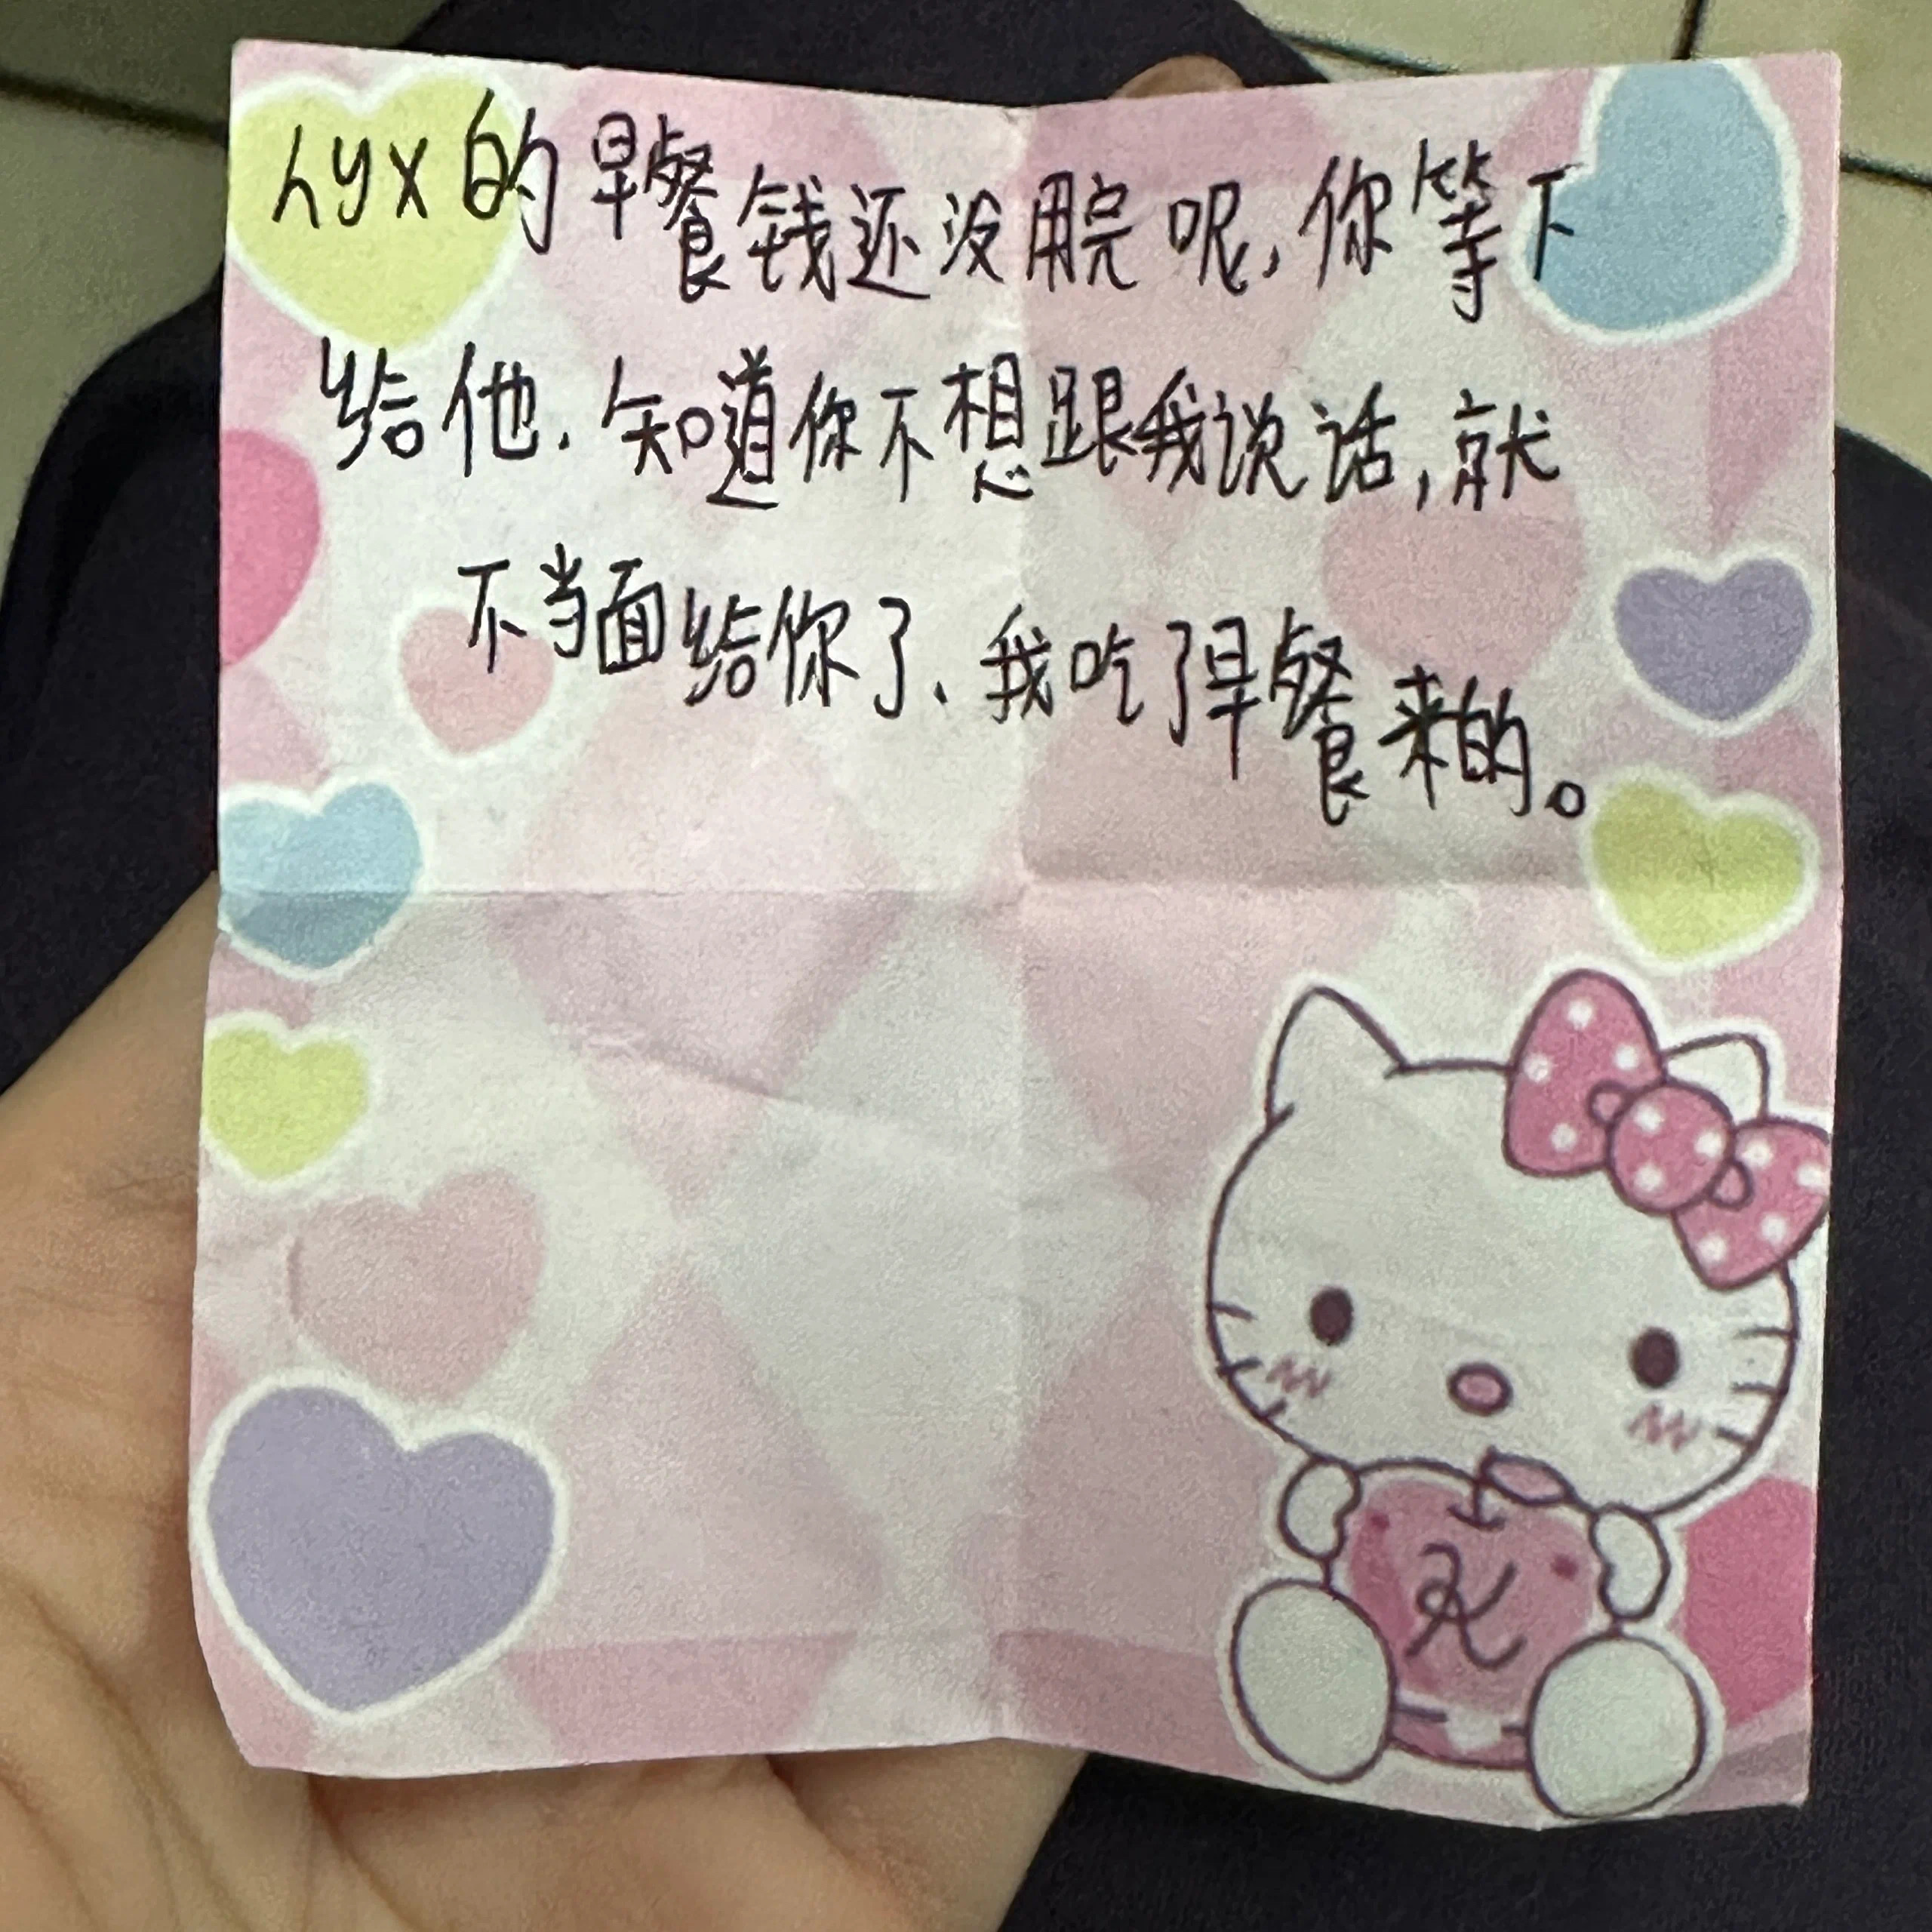 hyx的早餐钱还没用完呢，你等下
给他．知道你不想跟我说话，就
不当面给你了、我吃了早餐来的。